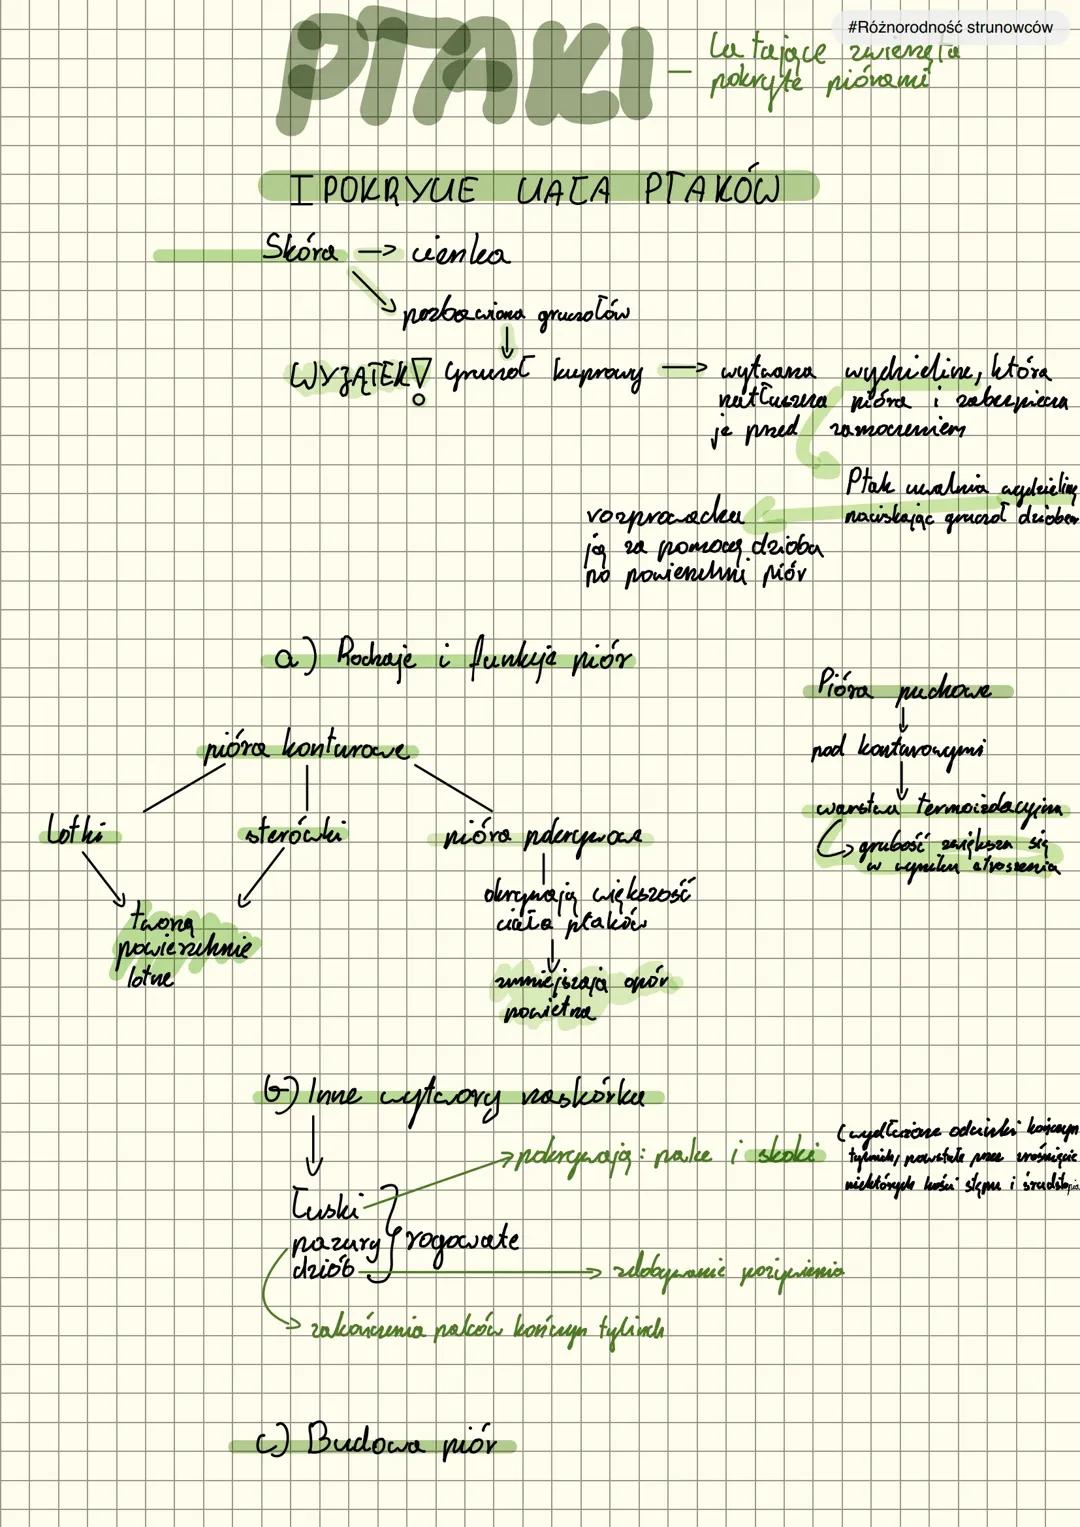 #Różnorodność strunowców
PTAKI
— Latające zwierzęta
pokryte piórami
I POKRYCIE CIAŁA PTAKÓW
Skóra → cienka
pozbawiona gruczołów
WYJĄTEK! Gruczoł kuprowy → wytwarza wydzielinę, która
natłuszcza pióra i zabezpiecza
je przed zamoczeniem
Ptak uwalnia wydzielinę
naciskając gruczoł dziobem
rozprowadza
ją za pomocą dzioba
po powierzchni piór
a) Rodzaje i funkcje piór
Pióra puchowe
pod konturowymi
warstwa termoizolacyjna
grubość zwiększa się
w wyniku stroszenia
pióra konturowe
lotki
sterówki
pióra pokrywowe
tworzą
powierzchnie
lotne
okrywają większość
ciała ptaków
zmniejszają opór
powietrza
b) Inne wytwory naskórka
→ pokrywają: palce i skoki
(wydłużone odcinki kończyn
tylnich, powstałe przez zrośnięcie
niektórych kości stępu i śródstopia
Łuski
pazury } rogowate
dziób → zdobywanie pożywienia
→ zakończenia palców kończyn tylnich
c) Budowa piór